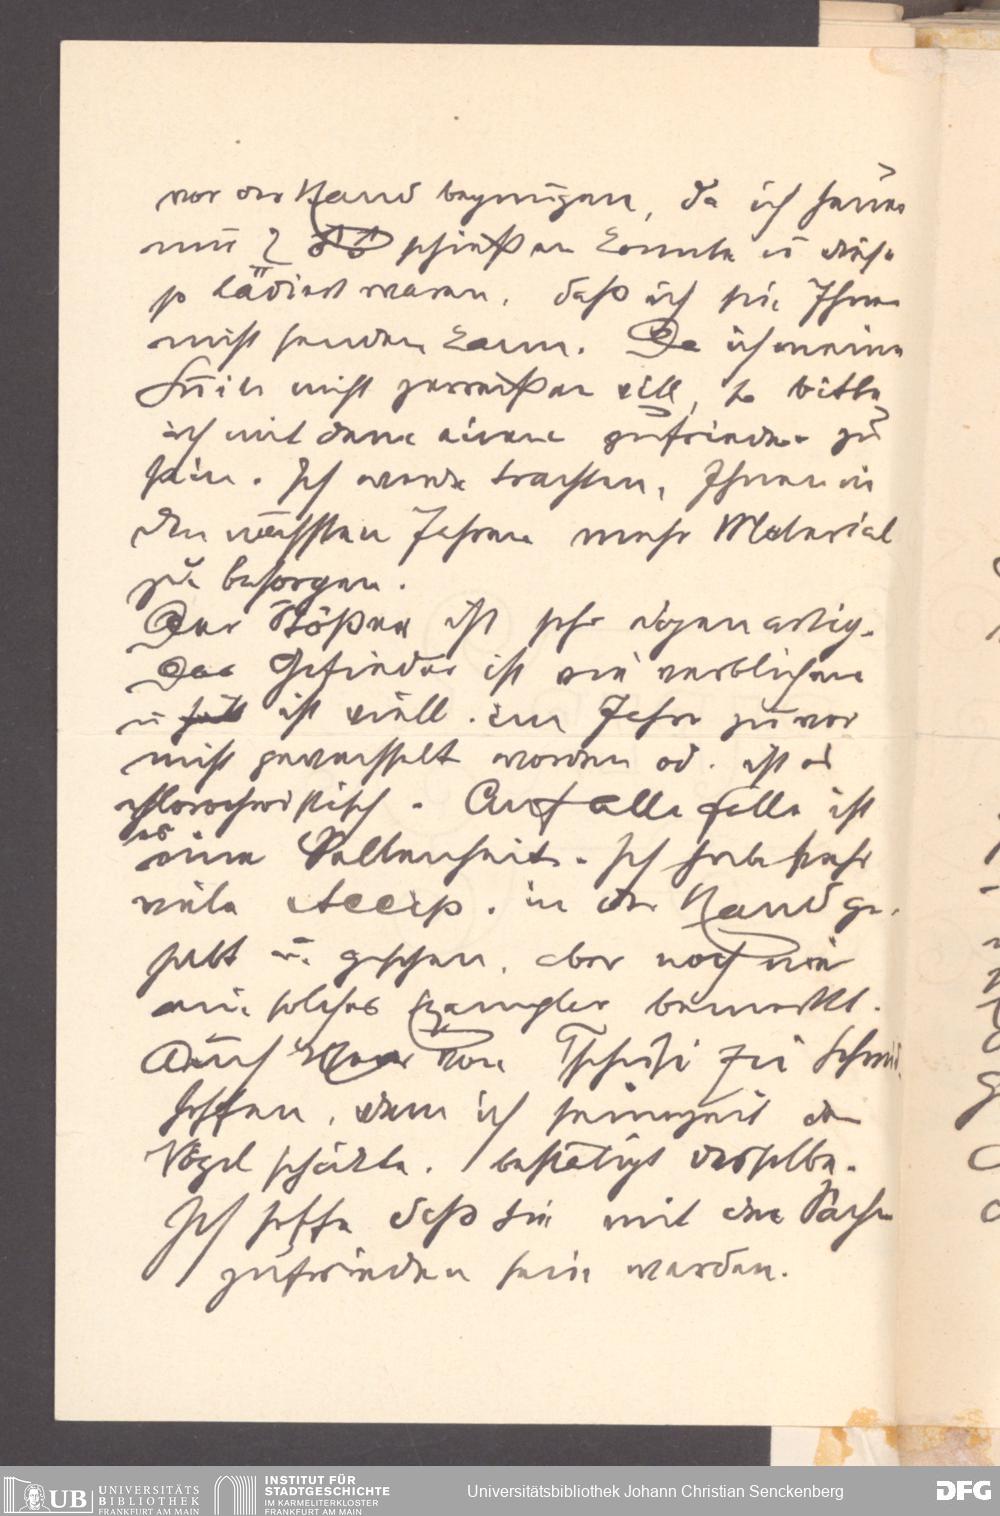 vor der Hand begnügen, da ich heuer
nur 2 ♂♂ schießen konnte u. diese
so lädiert waren, daß ich sie Ihnen
nicht senden kann. Da ich meine
Suite nicht zerreißen will, so bitte
ich mit dem einen zufrieden zu
sein. Ich werde trachten, Ihnen in
den nächsten Jahren mehr Material
zu besorgen.
Der Stößer ist sehr eigenartig.
Das Gefieder ist wie verblichen
u ist viell. im Jahr zuvor
nicht gewechselt worden od. ist es
chlorochroistisch. Auf alle Fälle ist
es eine Seltenheit. Ich habe sehr
viele Accip. in der Hand ge-
habt u. gesehen, aber noch nie
ein solches Exemplar bemerkt.
Auch Herr von Tschusi zu Schmid
hoffen, dem ich seinerzeit den
Vogel schickte, bestätigt dasselbe.
Ich hoffe daß Sie mit der Sache
zufrieden sein werden.
UB UNIVERSITÄTS
BIBLIOTHEK
FRANKFURT AM MAIN
INSTITUT FÜR
STADTGESCHICHTE
IM KARMELITERKLOSTER
FRANKFURT AM MAIN
Universitätsbibliothek Johann Christian Senckenberg
DFG